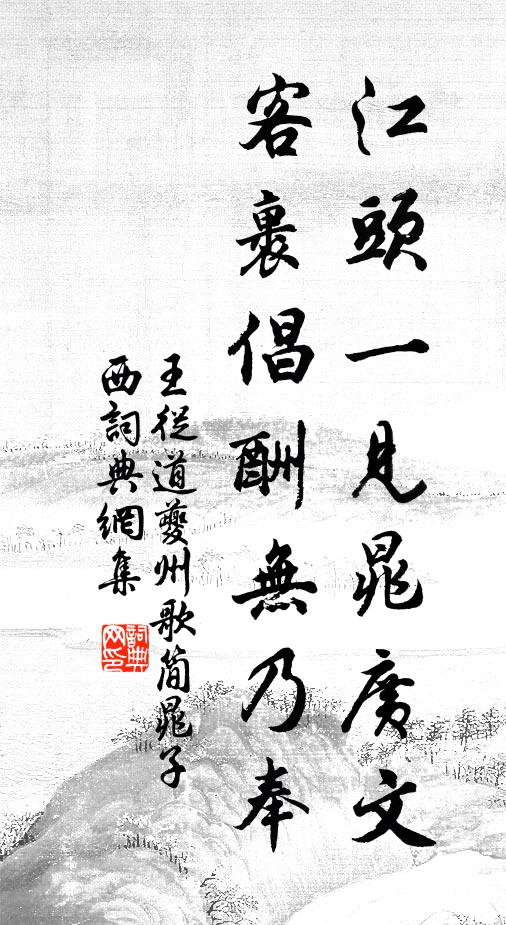 江頭一見晁廣文
客裏倡酬無乃奉
王從道夔州歌简晁子
西詞典網集
詞典